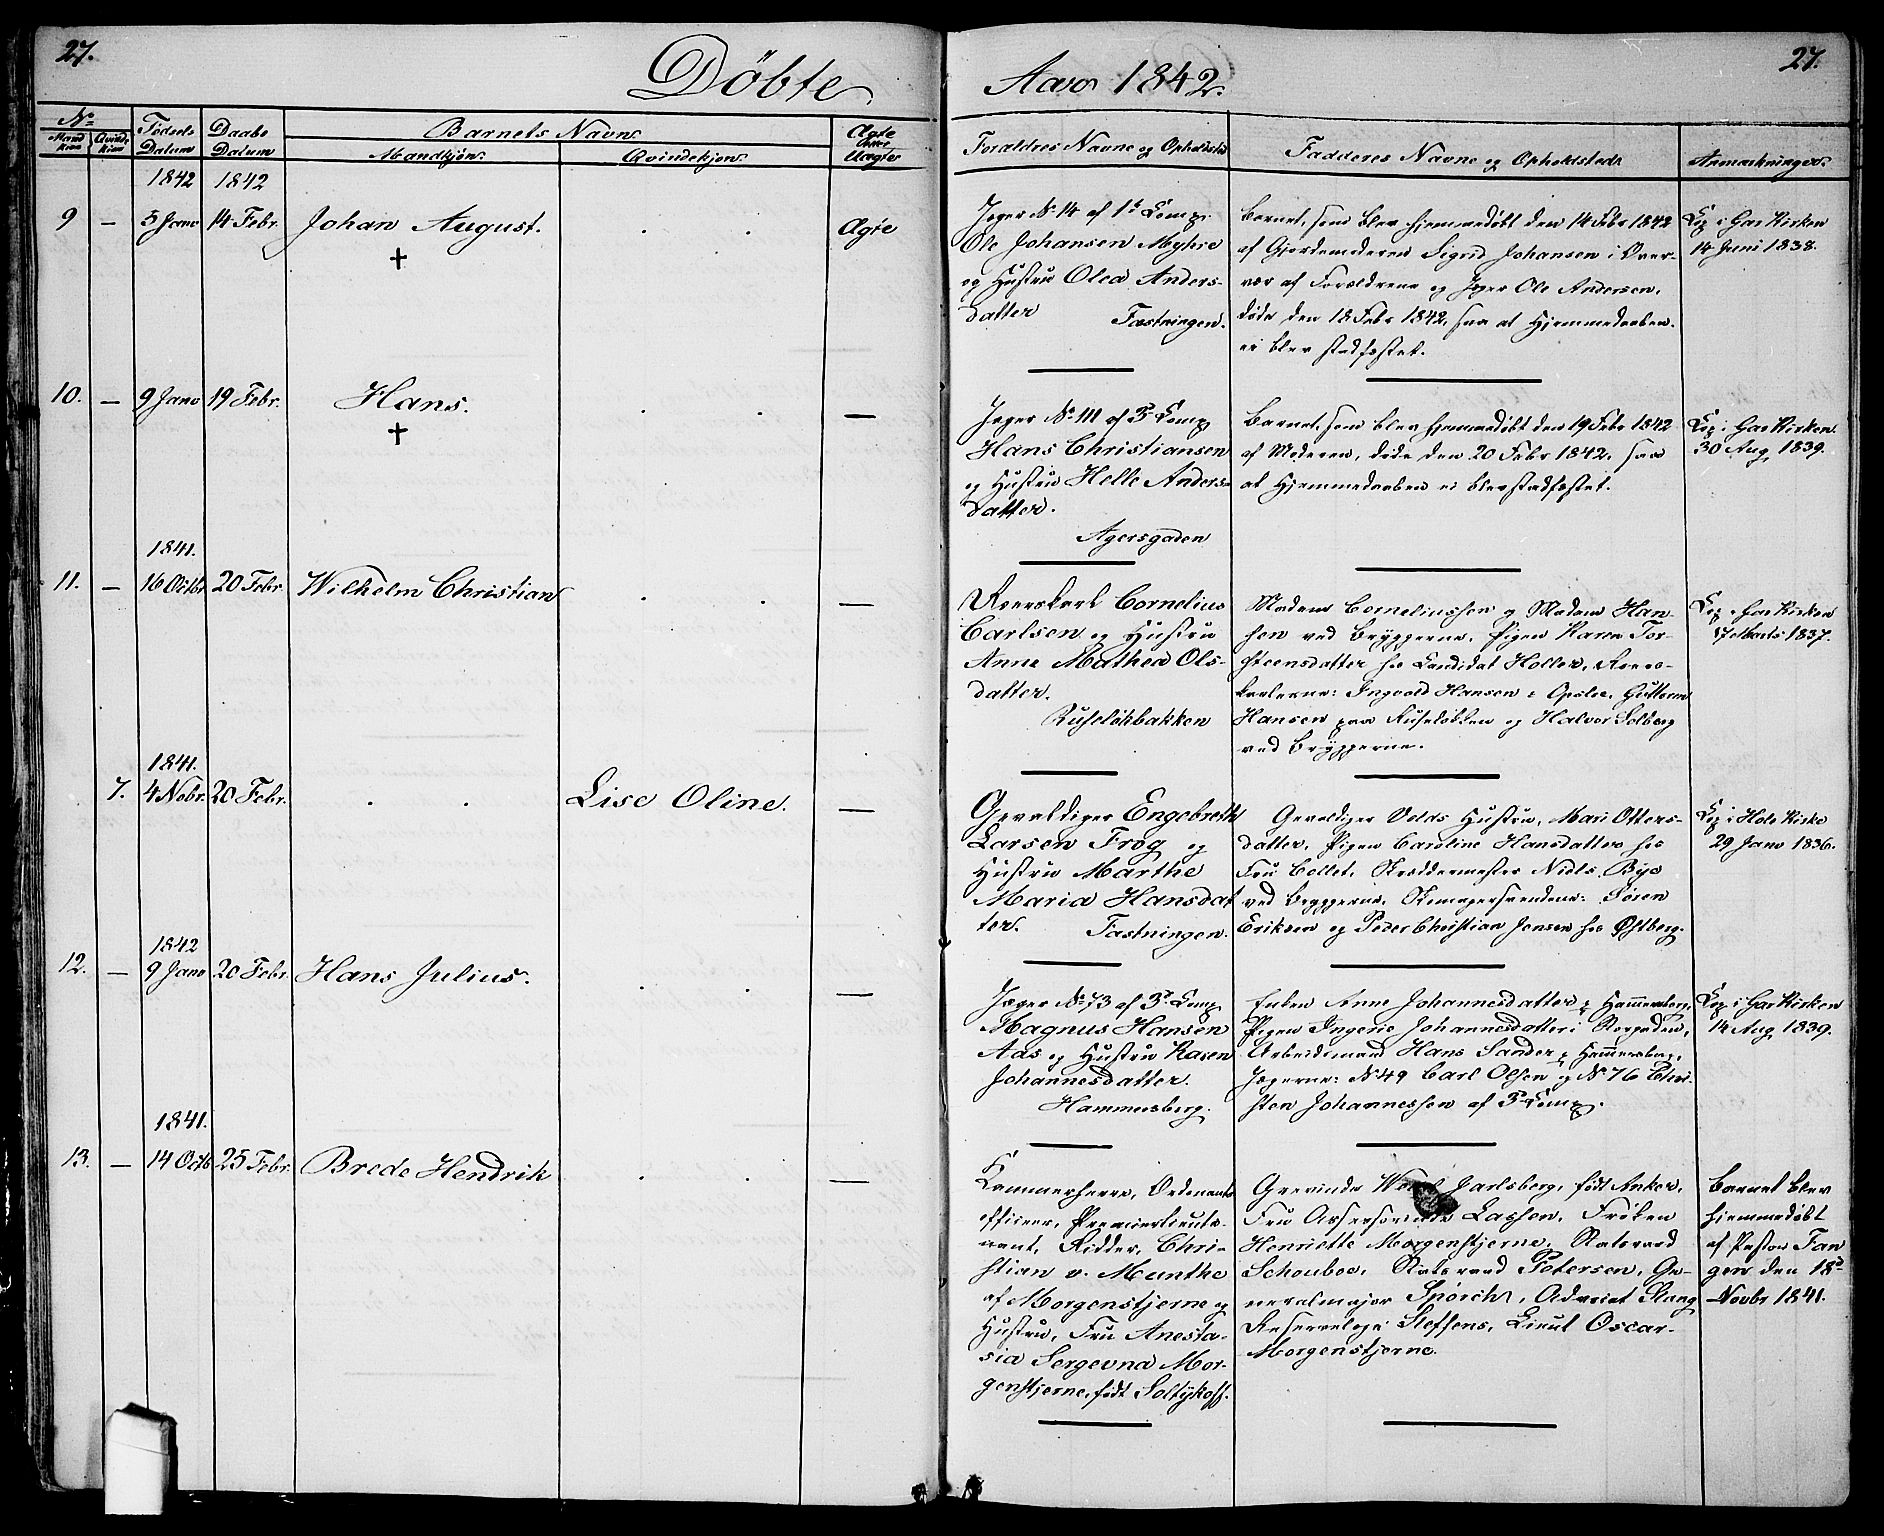 27.
27.
Døbte
Aar 1842.
No
Mand kiøn
Qvinde kiøn
Fødsels Datum
Daabs Datum
Barnets Navn.
Mandkjøn.
Qvindekjøn.
Ægte eller Uægte
Forældres Navne og Opholdsted
Fadderes Navne og Opholdsted
Anmærkninger.
1842 1842
9 – 5 Janr 14 Febr. Johan August. Ægte
†
Jæger No 14 af 1ste Comp.
Ole Johansen Myhre
og Hustru Olea Anders-
datter
Fæstningen.
Barnet, som blev hjemmedøbt den 14 Febr 1842
af Gjordemoderen Sigrid Johansen i Over-
vær af Forældrene og Jæger Ole Andersen,
døde den 18 Febr 1842, saa at Hjemmedaaben
ei blev stadfæstet.
Cop. i Gar Kirken
14 Juni 1838.
10. – 9 Janr 19 Febr. Hans. –
†
Jæger No 111 af 3die Comp
Hans Christiansen
og Hustru Helle Anders-
datter.
Agersgaden
Barnet, som blev hjemmedøbt den 19 Febr 1842
af Moderen, døde den 20 Febr 1842, saa
at Hjemmedaaben ei blev stadfæstet.
Cop. i Gar Kirken
30 Aug. 1839.
1841.
11. – 16 Octbr 20 Febr. Wilhelm Christian –
Roerskarl Cornelius
Carlsen og Hustru
Anne Mathea Ols-
datter.
Ruseløkbakken
Madam Corneliussen og Madam Han-
sen ved Bryggerne, Pigen Karen Tor-
steensdatter hos Candidat Holler, Roers-
karlerne: Ingvald Hansen i Opsloe, Guttorm
Hansen paa Ruseløkken og Halvor Solberg
ved Bryggerne.
Cop i Gar Kirken
17 Marts 1837.
1841.
7. 4 Nobr. 20 Febr. Lise Oline. –
Gevaldiger Engebreth
Larsen Frøg og
Hustru Marthe
Maria Hansdat
ter.
Fæstningen.
Gevaldiger Volds Hustru, Mari Otters-
datter, Pigen Caroline Hansdatter hos
Fru Collet, Skræddermester Niels Bye
ved Bryggerne, Skomagersvendene: Søren
Eriksen og Peder Christian Jensen hos Østberg.
Cop i Hole Kirke
29 Janr 1836.
1842
12. – 9 Janr 20 Febr. Hans Julius. –
Jæger No 73 af 3die Comp
Magnus Hansen
Aas og Hustru Karen
Johannesdatter.
Hammersberg.
Enken Anne Johannesdatter p Hammersberg,
Pigen Ingerie Johannesdatter i
Arbeidsmand Hans Sander p Hammersberg,
Jægerne: No 49 Carl Olsen og No 76 Chri-
sten Johannessen af 3die Comp.
Cop i Gar Kirken
14 Aug. 1839.
1841.
13. – 14 Octb 25 Febr. Brede Hendrik –
Kammerherre, Ordonants
officeer, Premierlieute-
nant, Ridder, Chri-
stian v. Munthe
af Morgenstjerne og
Hustru, Fru Anesta-
sia Sergevna Mor-
genstjerne, født Soltykoff.
Grevinde Jarlsberg, født Anker,
Fru Assessorinde Lassen, Frøken
Henriette Morgenstjerne, Statsraad
Schouboe, Statsraad Petersen, Ge-
neralmajor Spørck, Advocat Stang
Reservelæge Steffens, Lieut Oscar
Morgenstjerne.
Barnet blev
hjemmedøbt
af Pastor Fan
gen den 18de
Novbr 1841.